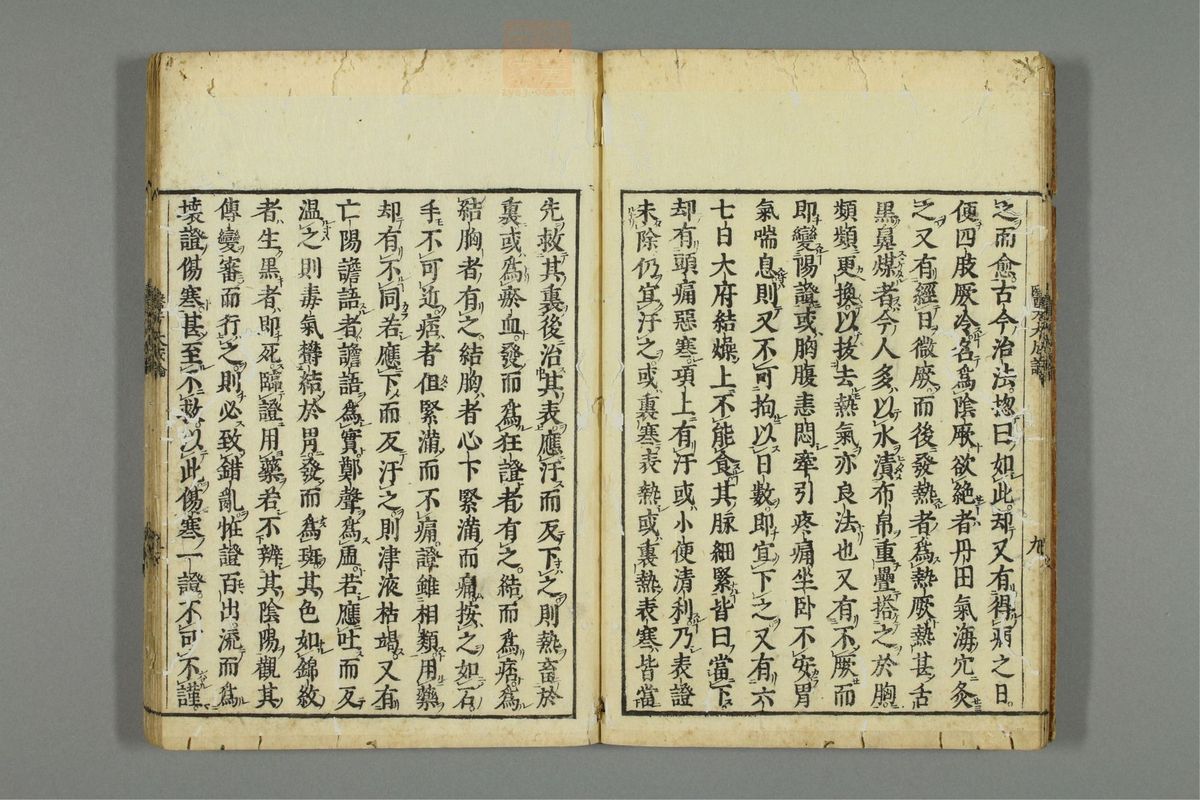 之而愈古今治法揔曰如此却又有得病之日
便四肢厥冷名爲陰厥欲絶者丹田氣海穴灸
之又有經日微厥而後發熱者爲熱厥熱甚舌
黒鼻煤者今人多以水漬布帛重疊搭之於胸
頻頻更換以拔去熱氣亦良法也又有不厥而
即變陽證或胸腹恚悶牽引疼痛坐卧不安胃
氣喘息則又不可拘以日數即宜下之又有六
七日大府結燥上不能食其脉細緊皆曰當下
却有頭痛惡寒項上有汗或小便清利乃表證
未除仍宜汗之或裏寒表熱或裏熱表寒皆當
先救其裏後治其表應汗而反下之則熱畜於
裏或爲瘀血發而爲狂證者有之結而爲痞爲
結胸者有之結胸者心下緊滿而痛按之如石
手不可近痞者但緊滿而不痛證雖相類用藥
却有不同若應下而反汗之則津液枯竭又有
亡陽譫語者譫語爲實鄭聲爲虛若應吐而反
温之則毒氣欝結於胃發而爲斑其色如錦紋
者生黒者即死臨證用藥若不辨其陰陽觀其
傳變審而行之則必致錯亂恠證百出流而爲
壞證傷寒甚至不救以此傷寒一證不可不謹
九